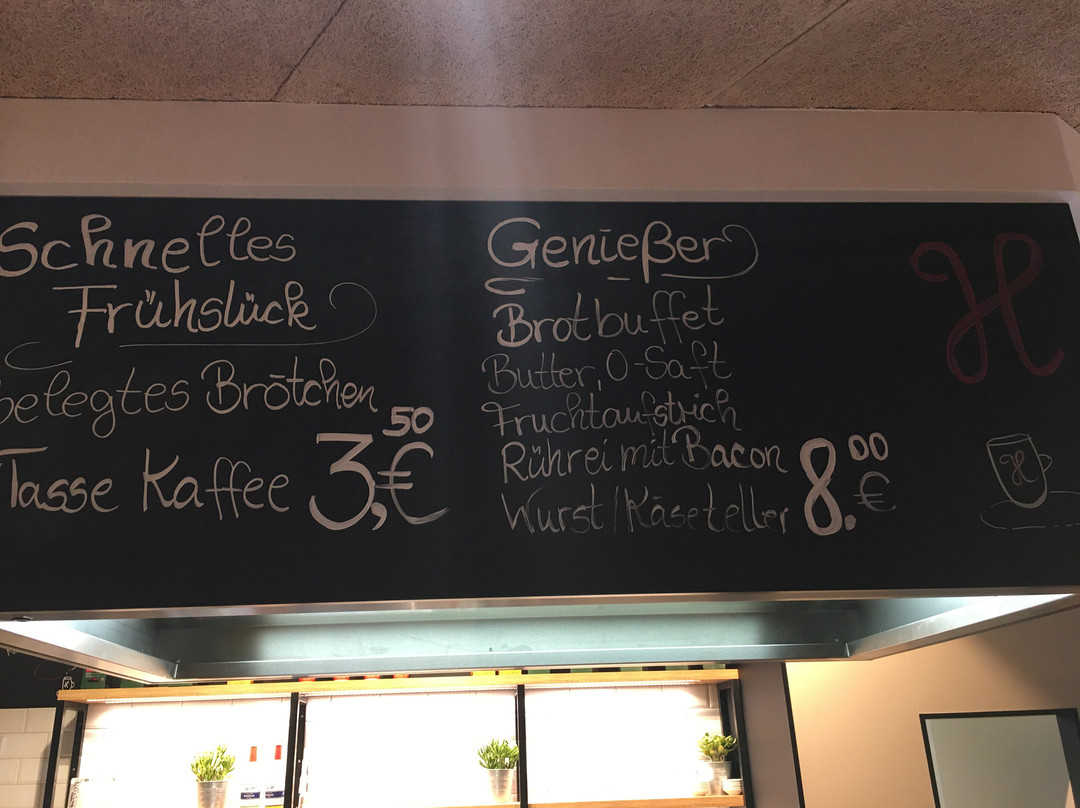 Schnelles
Frühstück
belegtes Brötchen
Tasse Kaffee 3,50 €
Genießer
Brotbuffet
Butter, O-Saft
Fruchtaufstrich
Rührei mit Bacon
Wurst/Käseteller 8.00 €
H
H